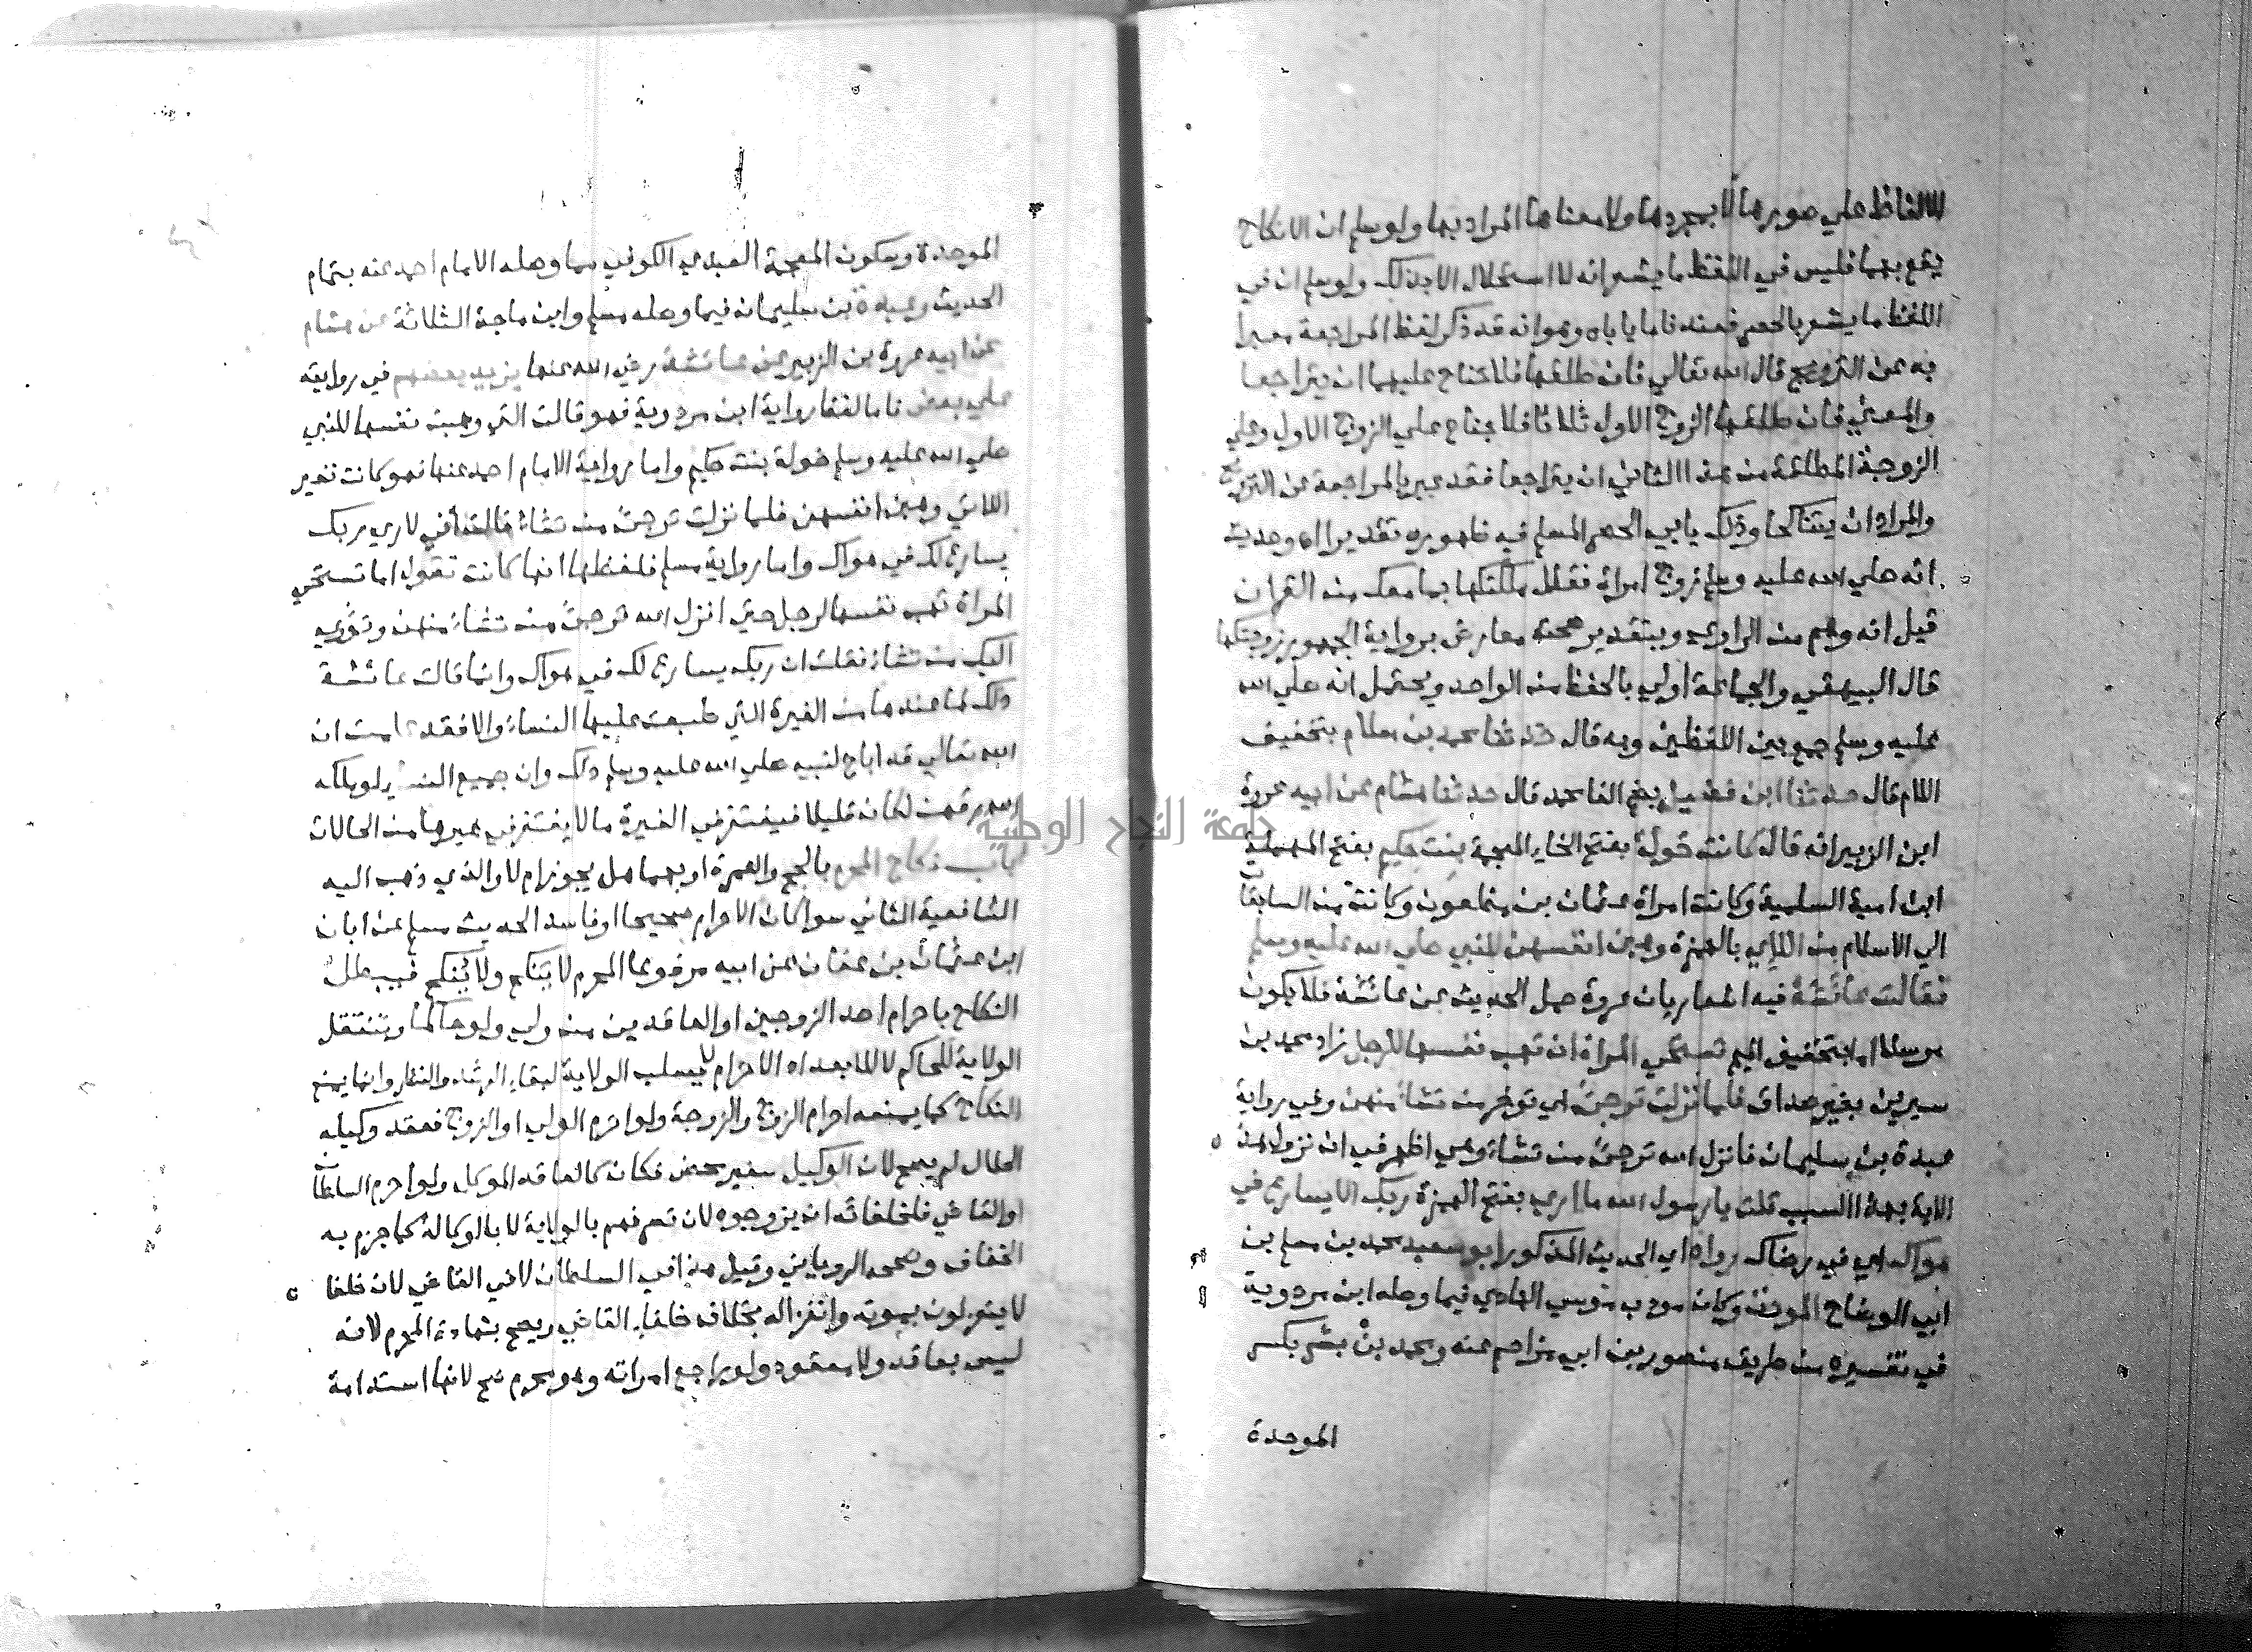 للالفاظ علي صورها لا بمجردها ولا معناها المراد بها ولو سلم ان الانكاح
يقع بهما فليس في اللفظ ما يشعرانه لا استحلال الا بذلك ولو سلم ان في
اللفظ ما يشعر بالحصر فعندنا ما ياباه وهو انه قد ذكر لفظ المراجعة معبرا
به عن التزويج قال الله تعالي فان طلقها فلا جناح عليهما ان يتراجعا
والمعني فان طلقها الزوج الاول ثلاثا فلا جناح علي الزوج الاول وعلي
الزوجة المطلقة من هذا الثاني ان يتراجعا فقد عبر بالمراجعة عن التزويج
والمراد ان يتناكحا وذلك يابي الحصر المسلم فيه ظهوره تقديرا اه وحديث
انه صلي الله عليه وسلم زوج امراة فقال ملكتكها بما معك من القران
قيل انه وهم من الراوي وبتقدير صحته معارض برواية الجمهور زوجتكها
قال البيهقي والجماعة اولي بالحفظ من الواحد ويحتمل انه صلي الله
عليه وسلم جمع بين اللفظين وبه قال حدثنا محمد بن سلام بتخفيف
اللام قال حدثنا ابن فضيل بضم الفا محمد قال حدثنا هشام عن ابيه عروة
ابن الزبير انه قال كانت خولة بفتح الخاء المعجمة بنت حكيم بفتح المهملة
ابن امية السلمية وكانت امراة عثمان بن مظعون وكانت من السابقات
الي الاسلام من اللاي بالهمزة وهبن انفسهن للنبي صلي الله عليه وسلم
فقالت عائشة فيه اشعار بان عروة حمل الحديث عن عائشة فلا يكون
مرسلا اما بتخفيف الميم تستحي المراة ان تهب نفسها للرجل زاد محمد بن
سيرين بغير صداق فلما نزلت ترجئ اي توخر من تشاء منهن وفي رواية
عبدة بن سليمان فانزل الله ترجئ من تشاء وهي اظهر في ان نزول هذه
الاية بهذا السبب قلت يا رسول الله ما اري بفتح الهمزة ربك الا يسارع في
هواك اي في رضاك رواه اي الحديث المذكور ابو سعيد محمد بن مسلم بن
ابي الوضاح المودب وكان مودب موسي الهادي فيما وصله ابن مردوية
في تفسيره من طريق منصور بن ابي مزاحم عنه ومحمد بن بشر بكسر
الموحدة
الموحدة وسكون المعجمة العبدي الكوفي مما وصله الامام احمد عنه بتمام
الحديث وعبدة بن سليمان فيما وصله مسلم وابن ماجة الثلاثة عن هشام
عن ابيه عروة بن الزبير عن عائشة رضي الله عنها يزيد بعضهم في روايته
علي بعض فاما لفظ رواية ابن مردوية فهو قالت التي وهبت نفسها للنبي
صلي الله عليه وسلم خولة بنت حكيم واما رواية الامام احمد عنها فهو كانت تعير
اللاتي وهبن انفسهن فلما نزلت ترجئ من تشاء قالت اني لاري ربك
يسارع لك في هواك واما رواية مسلم فلفظها انها كانت تقول اما تستحي
المراة تهب نفسها لرجل حتي انزل الله ترجئ من تشاء منهن وتؤوي
اليك من تشاء فقلت ان ربك يسارع لك في هواك وانما قالت عائشة
ذلك لما عندها من الغيرة التي طبعت عليها النساء والا فقد علمت ان
الله تعالي قد اباح لنبيه صلي الله عليه وسلم ذلك وان جميع النساء لو ملكه
الله رقهن لكان قليلا فيغتفر في الغيرة ما لا يغتفر في غيرها من الحالات
باب نكاح المحرم بالحج والعمرة او بهما هل يجوز ام لا والذي ذهب اليه
الشافعية الثاني سوا كان الاحرام صحيحا او فاسد الحديث مسلم عن ابان
ابن عثمان بن عفان عن ابيه مرفوعا المحرم لا يَنكح ولا يُنكح فيبطل
النكاح باحرام احد الزوجين او العاقدين من ولي ولو حاكما وتنتقل
الولاية للحاكم لا للابعد اه الاحرام لا يسلب الولاية لبقاء الرشد والنظر وانما يمنع
النكاح كما يمنعه احرام الزوج والزوجة ولو احرم الولي او الزوج فعقد وكيله
الحلال لم يصح لان الوكيل سفير محض فكان كالعاقد الموكل ولو احرم السلطان
او القاضي فلخلفائه ان يزوجوه لان تصرفهم بالولاية لا بالوكالة كما جزم به
الخفاف وصححه الروياني وقيل هذا في السلطان لا في القاضي لان خلفا
لا ينعزلون بموته وانعزاله بخلاف خلفاء القاضي ويصح بشهادة المحرم لانه
ليس بعاقد ولا معقود ولو راجع امراته وهو محرم صح لانها استدامة
جامعة النجاح الوطنية